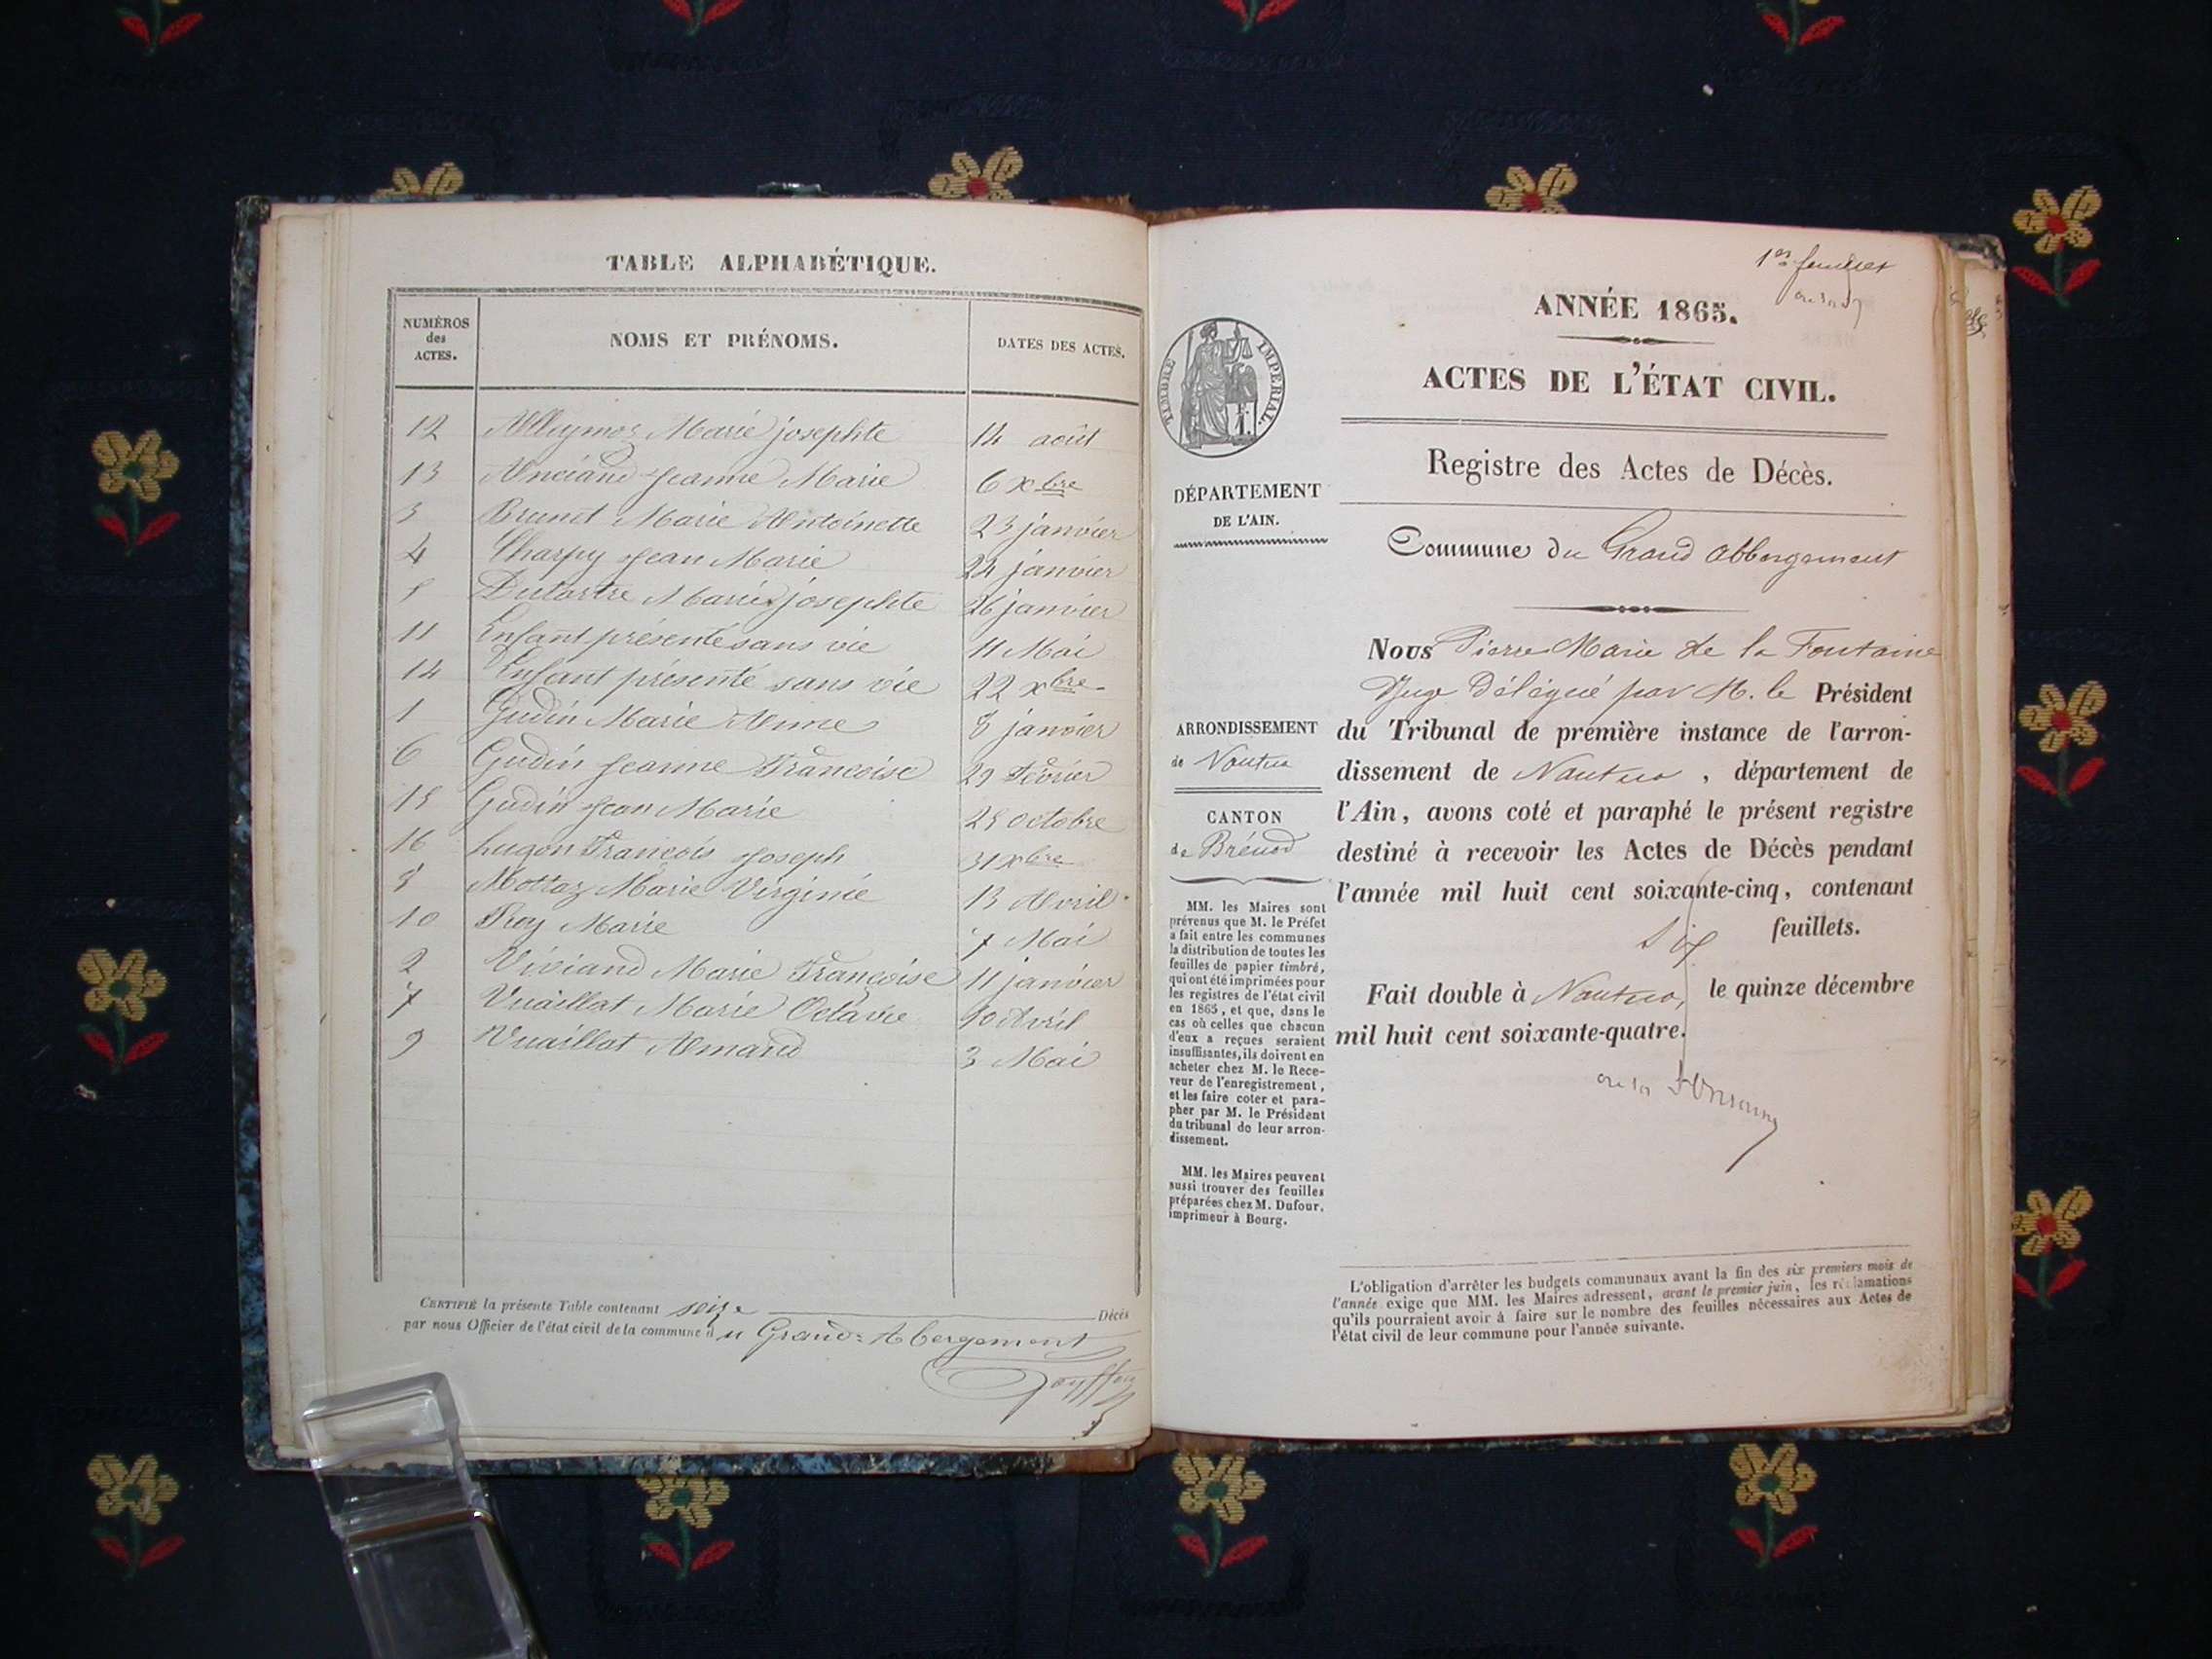 TABLE ALPHABÉTIQUE.
NUMÉROS des ACTES. NOMS ET PRÉNOMS. DATES DES ACTES.
12 Alleymoz Marie josephte 14 août
13 Anciand Jeanne Marie 6 Xbre
3 Brunet Marie Antoinette 23 janvier
4 Charpy Jean Marie 24 janvier
5 Dutartre Marie josephte 26 janvier
11 Enfant présenté sans vie 11 Mai
14 Enfant présenté sans vie 22 Xbre
1 Gudin Marie Anne 8 janvier
6 Gudin Jeanne Françoise 29 Février
15 Gudin Jean Marie 25 octobre
16 Lugon François Joseph 31 Xbre
8 Mottaz Marie Virginie 13 Avril
10 Troy Marie 7 Mai
2 Viviand Marie Françoise 11 janvier
7 Vuaillat Marie Octavie 10 Avril
9 Vuaillat Amand 3 Mai
CERTIFIÉ la présente Table contenant seize Décès
par nous Officier de l'état civil de la commune du Grand-Abergement
1er feuillet
ANNÉE 1865.
ACTES DE L'ÉTAT CIVIL.
Registre des Actes de Décès.
Commune du Grand abbergement
TIMBRE IMPÉRIAL.
DÉPARTEMENT
DE L'AIN.
ARRONDISSEMENT
de Nantua
CANTON
de Brénod
MM. les Maires sont
prévenus que M. le Préfet
a fait entre les communes
la distribution de toutes les
feuilles de papier timbré,
qui ont été imprimées pour
les registres de l'état civil
en 1865, et que, dans le
cas où celles que chacun
d'eux a reçues seraient
insuffisantes, ils doivent en
acheter chez M. le Rece-
veur de l'enregistrement,
et les faire coter et para-
pher par M. le Président
du tribunal de leur arron-
dissement.
MM. les Maires peuvent
aussi trouver des feuilles
préparées chez M. Dufour,
imprimeur à Bourg.
Nous Pierre Marie de la Fontaine
Juge Délégué par M. le Président
du Tribunal de première instance de l'arron-
dissement de Nantua, département de
l'Ain, avons coté et paraphé le présent registre
destiné à recevoir les Actes de Décès pendant
l'année mil huit cent soixante-cinq, contenant
six feuillets.
Fait double à Nantua, le quinze décembre
mil huit cent soixante-quatre.
L'obligation d'arrêter les budgets communaux avant la fin des six premiers mois de
l'année exige que MM. les Maires adressent, avant le premier juin, les réclamations
qu'ils pourraient avoir à faire sur le nombre des feuilles nécessaires aux Actes de
l'état civil de leur commune pour l'année suivante.